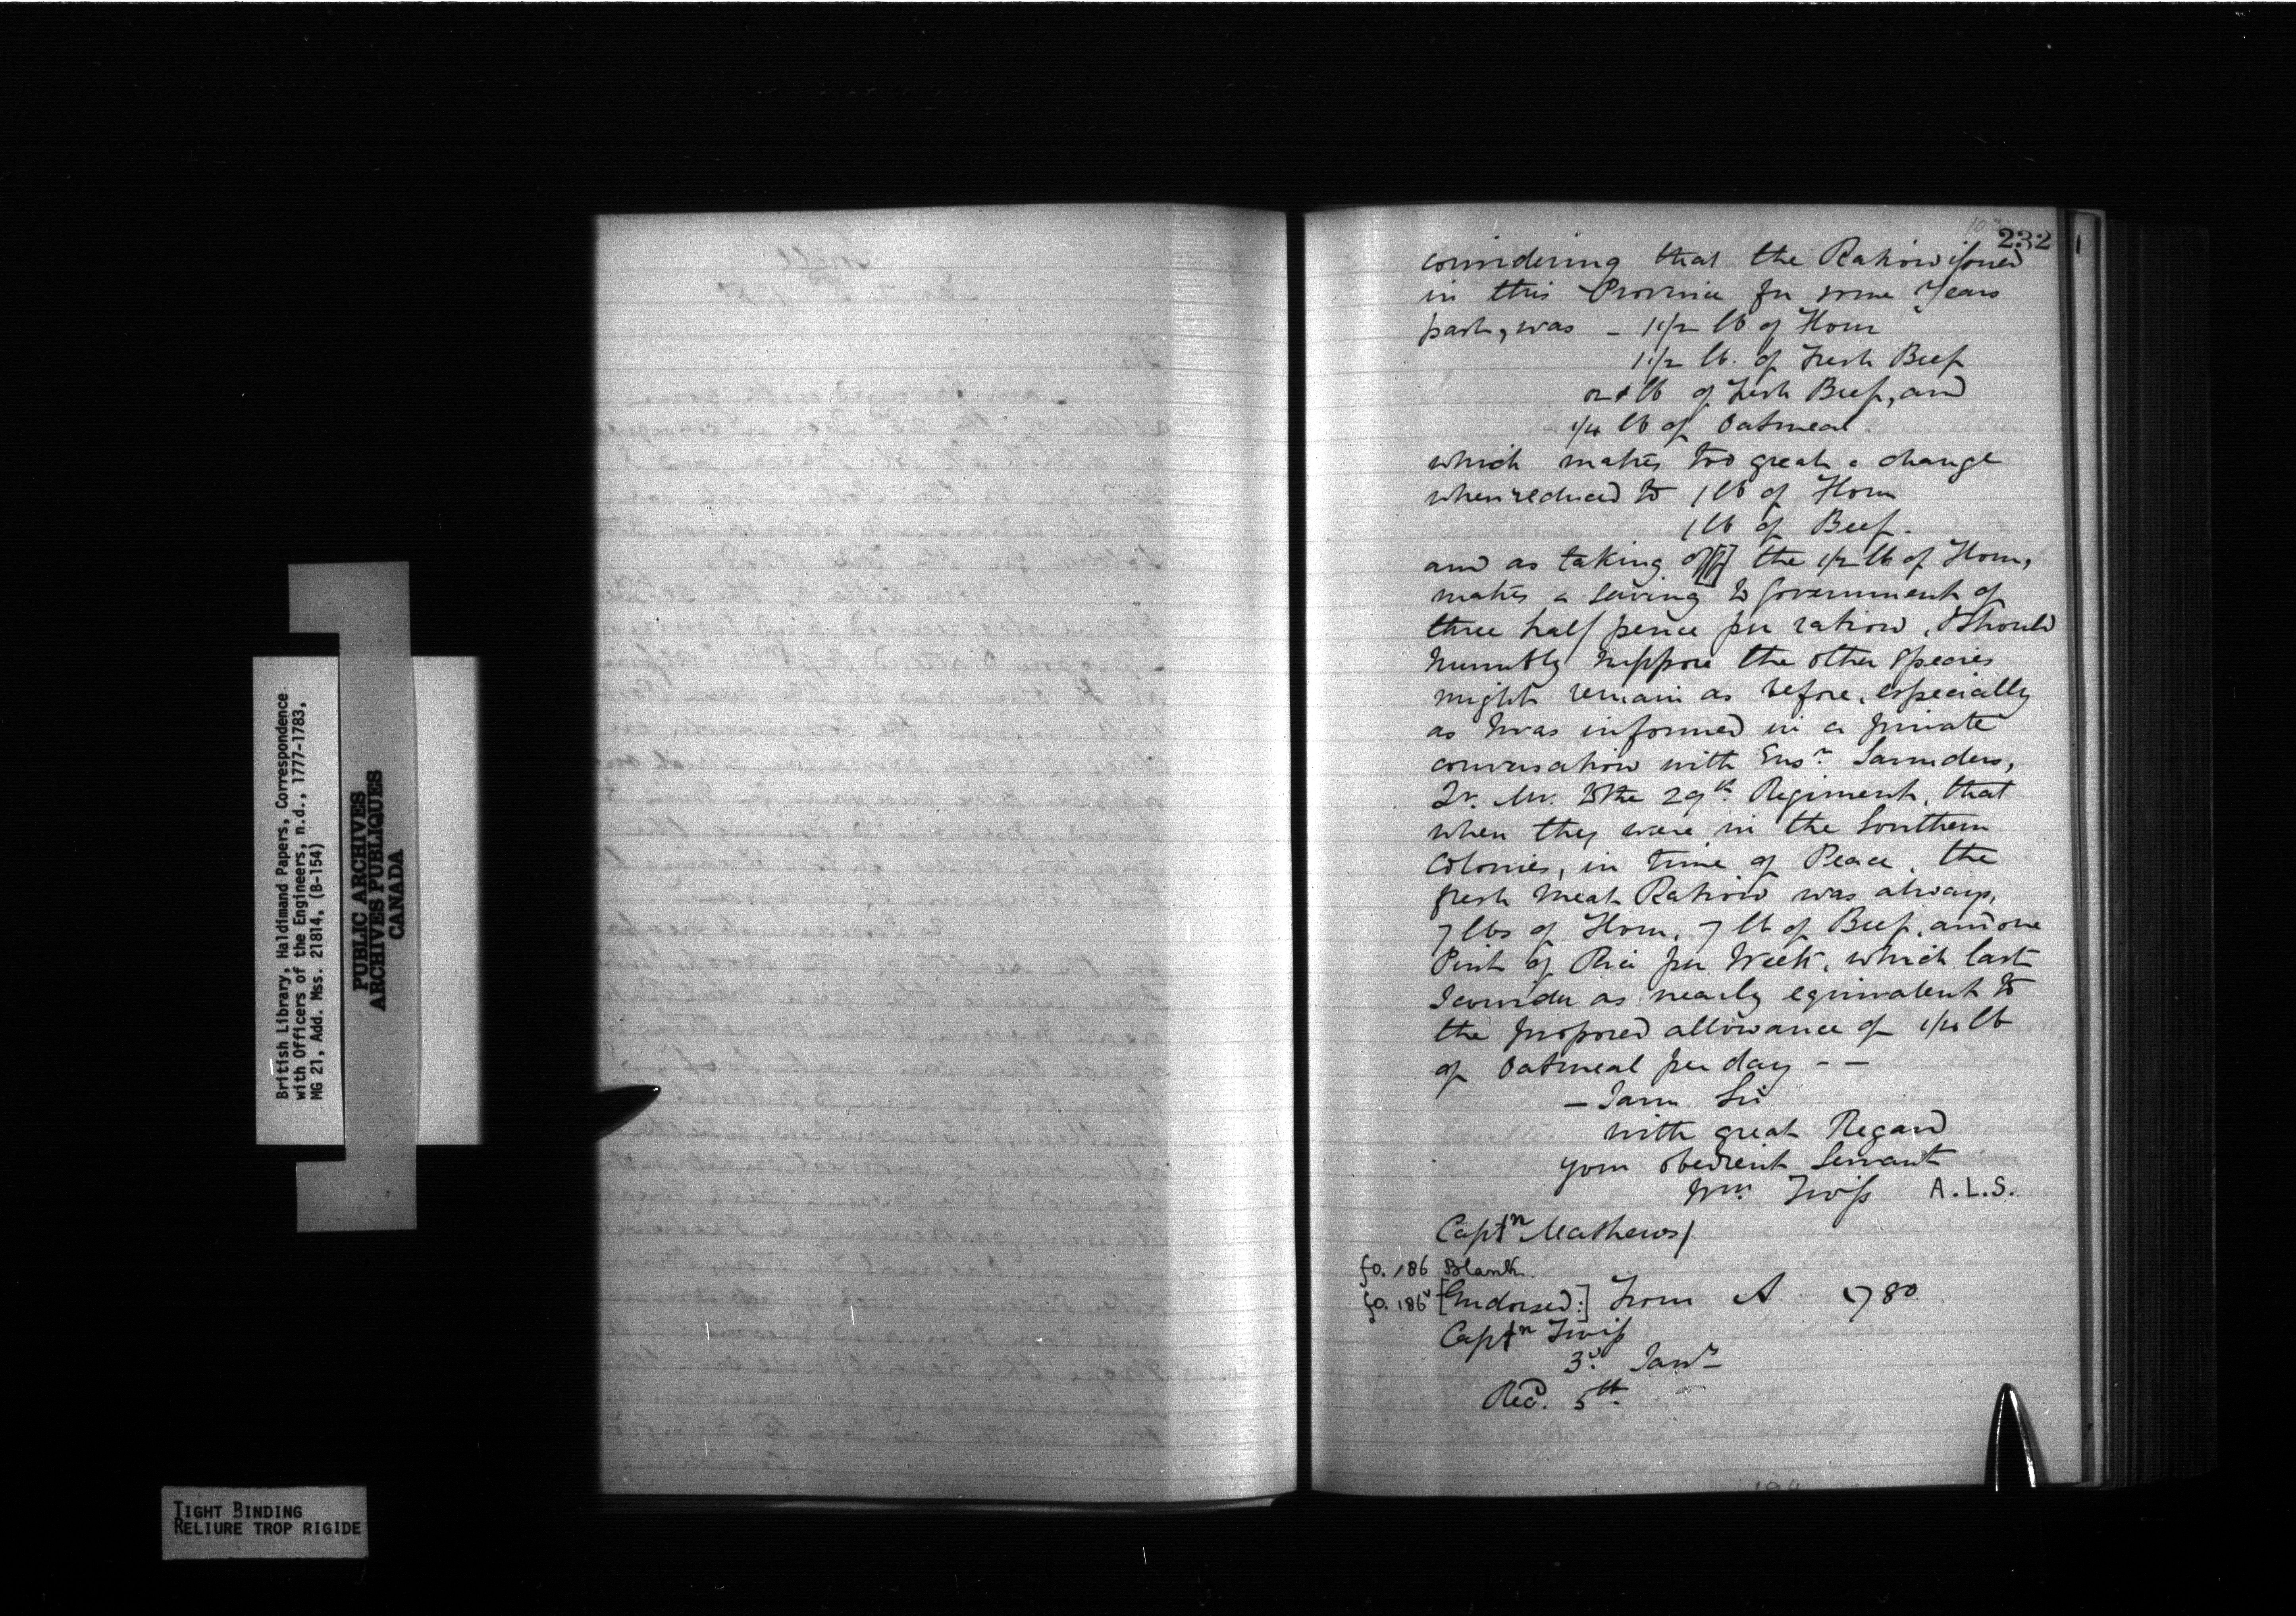 232
considering that the Ration issued
in this Province for some Years
past, was - 1 1/2 lb of Flour
1 1/2 lb. of Fresh Beef
or 1 lb of Fresh Beef, and
1/4 lb of Oatmeal
which makes too great a change
when reduced to 1 lb of Flour
1 lb of Beef.
and as taking of[f] the 1/2 lb of Flour,
makes a saving to Government of
three half pence per ration, I should
humbly suppose the other Species
might remain as before, especially
as I was informed in a private
conversation with Ensn. Saunders,
Qr. Mr. to the 29th. Regiment, that
when they were in the Southern
Colonies, in time of Peace, the
fresh Meat Ration was always,
7 lbs of Flour, 7 lb of Beef, and one
Pint of Rice per Week, which last
I consider as nearly equivalent to
the proposed allowance of 1/4 lb
of Oatmeal per day - -
- I am Sir
with great Regard
your obedient Servant
Wm. Twiss A.L.S.
Captn Mathews/
fo. 186 Blank.
fo. 186v [Endorsed:] From A 1780
Captn Twiss
3d. Janry
Recd. 5th.
British Library, Haldimand Papers, Correspondence
with Officers of the Engineers, n.d., 1777-1783,
MG 21, Add. Mss. 21814, (B-154)
PUBLIC ARCHIVES
ARCHIVES PUBLIQUES
CANADA
TIGHT BINDING
RELIURE TROP RIGIDE